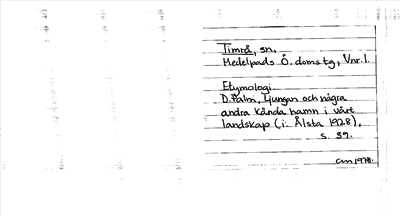 Timrå, sn.
Medelpads Ö. doms tg, Vnr. 1.
Etymologi
D. Palm, Ljungan och några
andra kända namn i vårt
landskap (i: Ålsta 1928),
s. 39.
am 1978.